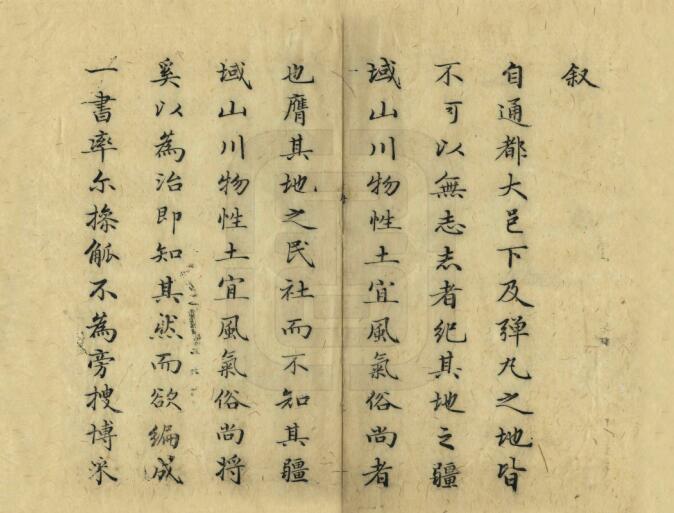 叙
自通都大邑下及弹丸之地皆
不可以無志志者纪其地之疆
域山川物性土宜風氣俗尚者
也膺其地之民社而不知其疆
域山川物性土宜風氣俗尚将
奚以為治即知其然而欲编成
一書率尔操觚不為旁搜博采